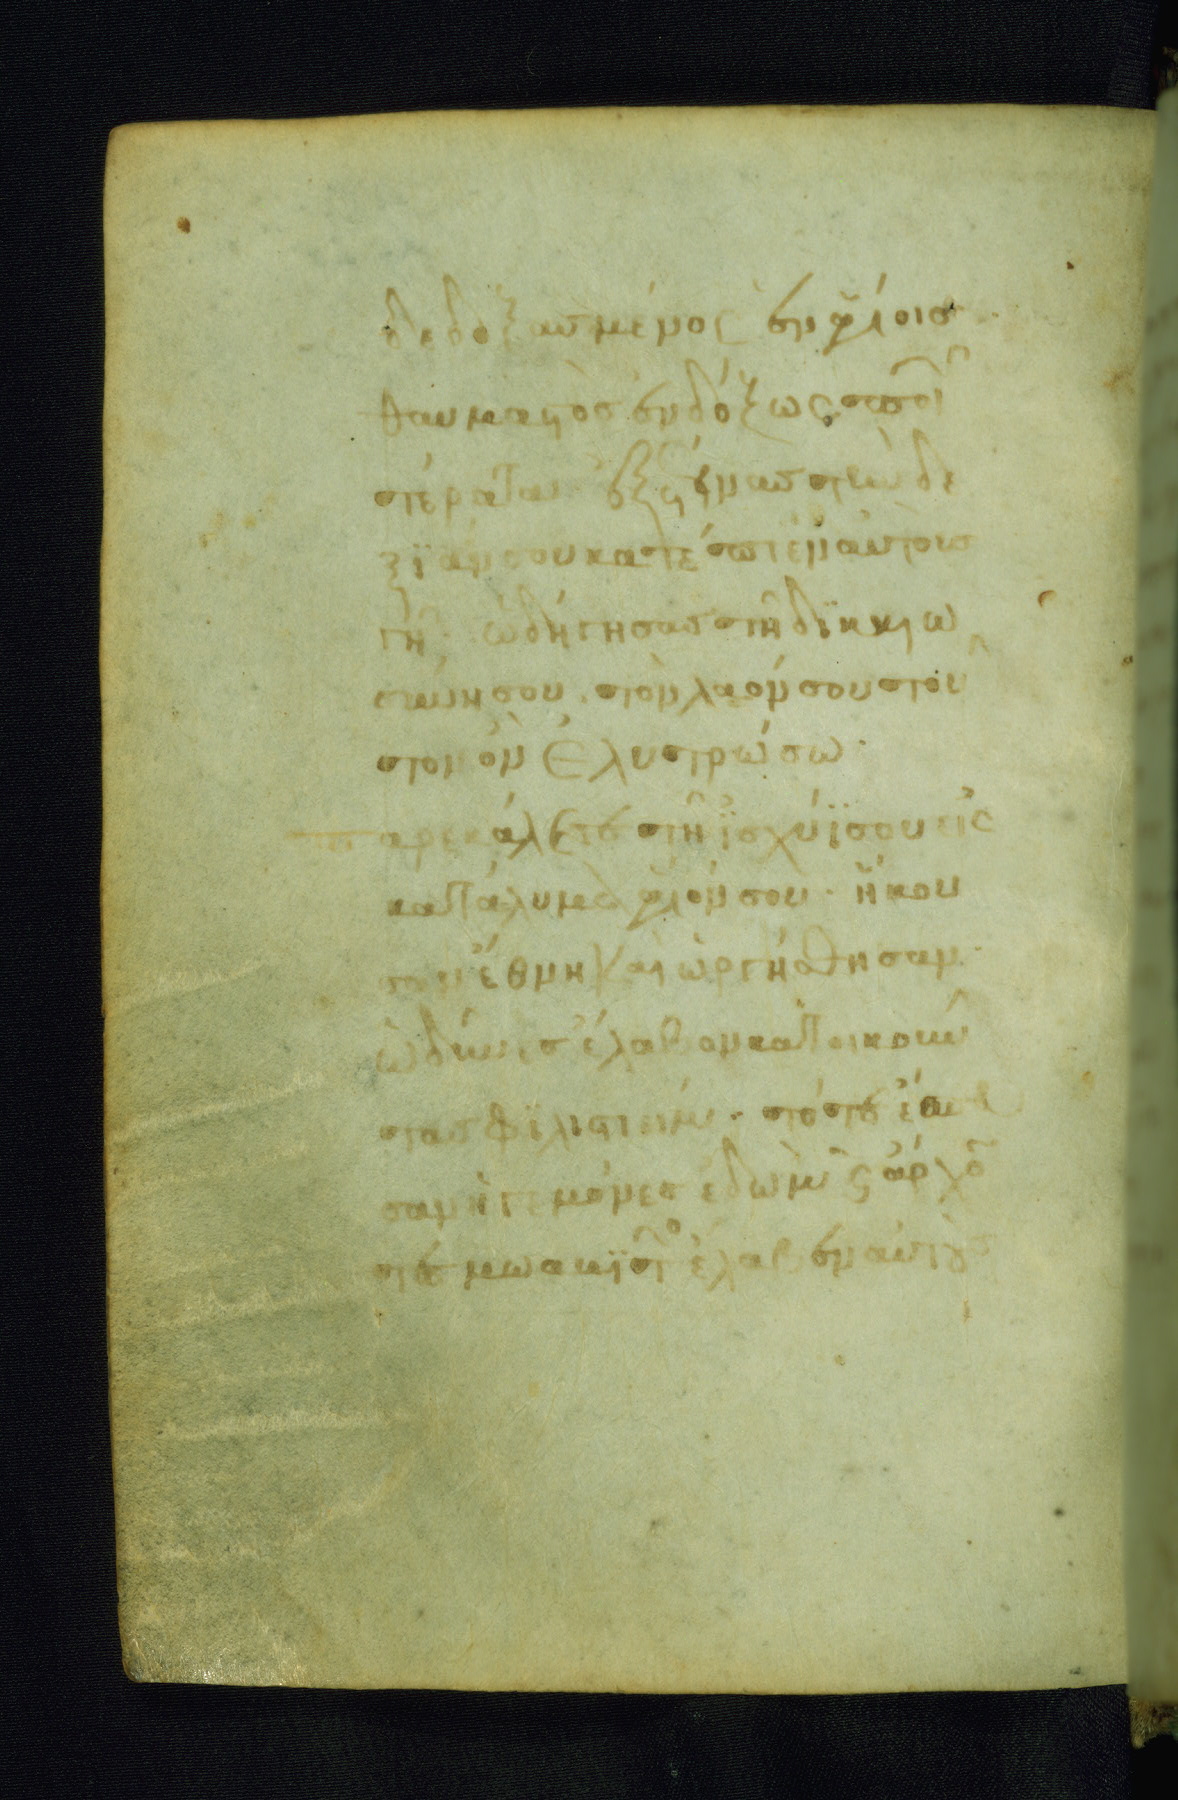 δεδοξασμένος ἐν ἁγίοισ.
θαυμαστὸσ ἐν δόξωςποι
τέρατα. ἐξέτεινασ τὴν δε
ξϊάν σου κατέπιεν αὐτοὺσ
γῆ. ὡδήγησασ τῆ δϊκαιω
σύνησου. τὸν λαόν σου τοῦ
τον ὃν ἐλυτρώσω.
παρεκάλεσασ τῆ ἰσχύϊ σου εἰς
κατάλυμα ἅγιόν σου. ἤκου
σαν ἔθνη καὶ ὠργήσθησαν.
ὠδῖνεσ ἔλαβον κατοικοῦν
τασ φϊλιστιείμ. τότε ἔσπευ
σαν ἡγεμόνεσ ἐδὼμ κ ἄρχον
τεσ μωαβιτῶ ἔλαβεν αὐτοὺσ